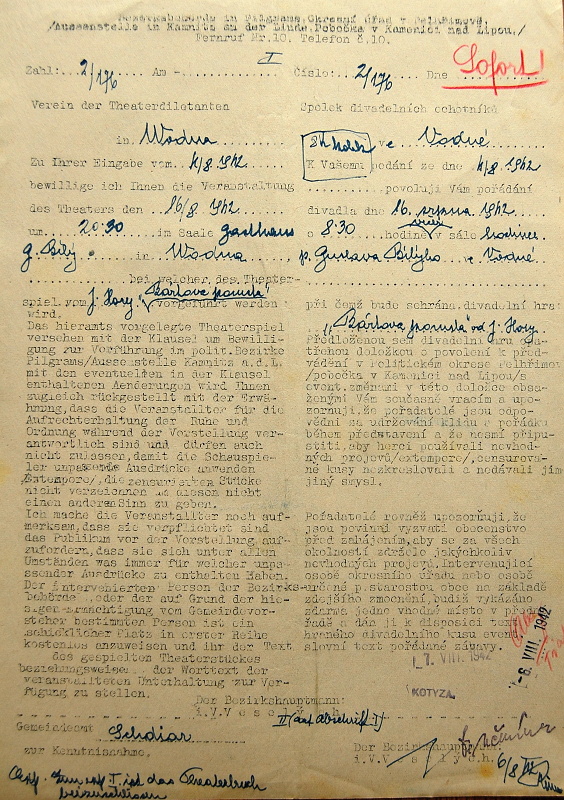 Bezirksbehörde in Pilgrams, Okresní úřad v Pelhřimově
/Aussenstelle in Kamnitz an der Linde, Pobočka v Kamenici nad Lipou./
Fernruf Nr. 10. Telefon č. 10.
I
Zahl: 2/176 Am -
Verein der Theaterdiletanten
in Wodna
Zu Ihrer Eingabe vom 4/8 1942
bewillige ich Ihnen die Veranstaltung
des Theaters den 16/8 1942
um 20:30 im Saale Gasthaus
g. Bílý in Wodna
bei welcher des Theater-
spiel vom J. Hory: "Bártova pomsta" vorgeführt werden
wird.
Das hieramts vorgelegte Theaterspiel
versehen mit der Klausel um Bewilli-
gung zur Vorführung im polit. Bezirke
Pilgrams/Aussenstelle Kamnitz a.d.L.
mit den eventuellen in der Klausel
enthaltenen Aenderungen wird Ihnen
zugleich rückgestellt mit der Erwä-
hnung, dass die Veranstallter für die
Aufrechterhaltung der Ruhe und
Ordnung während der Vorstellung ver-
antwortlich sind und dürfen auch
nicht zulassen, damit die Schauspie-
ler unpassende Ausdrücke anwenden
/Extempore/, die zensurierten Stücke
nicht verzeichnen an diesen nicht
einen anderen Sinn zu geben.
Ich mache die Veranstallter noch auf-
merksam, dass sie verpflichtet sind
das Publikum vor der Vorstellung auf-
zufordern, dass sie sich unter allen
Umständen was immer für welcher unpa-
ssender Ausdrücke zu enthalten haben.
Der intervenierten Person der Bezirks-
behörde oder der auf Grund der hie-
sigen Ermächtigung vom Gemeindevor-
steher bestimmten Person ist ein
schicklicher Platz in erster Reihe
kostenlos anzuweisen und ihr der Text
des gespielten Theaterstückes
beziehungsweise der Worttext der
veranstallteten Unterhaltung zur Ver-
fügung zu stellen.
Der Bezirkshauptmann:
i.V.V e s e l ý
Gemeindeamt
zur Kenntnisnahme.
Číslo: 2/176 Dne
Sofort!
Spolek divadelních ochotníků
ve Vodné
K Vašemu podání ze dne 4/8 1942
povoluji Vám pořádání
divadla dne 16. srpna 1942
o 8:30 hodině v sále hostince
p. Gustava Bílýho v Vodné
při čemž bude sehrána divadelní hra:
"Bártova pomsta" od J. Hory.
Předloženou sem divadelní hru opa-
třenou doložkou o povolení k před-
vádění v politickém okrese Pelhřimov
/pobočka v Kamenici nad Lipou/s
event. změnami v této doložce obsa-
ženými Vám současně vracím a upo-
zorňuji, že pořadatelé jsou odpo-
vědní za udržování klidu a pořádku
během představení a že nesmí připu-
stiti, aby herci používali nevhod-
ných projevů/extempore/, censurova-
né kusy nezkreslovali a nedávali jim
jiný smysl.
Pořadatelé rovněž upozorňuji, že
jsou povinni vyzvati obecenstvo
před zahájením, aby se za všech
okolností zdrželo jakýchkoliv
nevhodných projevů. Intervenující
osobě okresního úřadu nebo osobě
určené p. starostou obce na základě
zdejšího zmocnění, budiž vykázáno
zdarma jedno vhodné místo v před
řadě a dán jí k disposici text
hraného divadelního kusu event.
slovní text pořádané zábavy.
7. VIII. 1942
KOTYZA
8. VIII. 1942
II (auf Abschrift I)
Der Bezirkshauptmann:
i.V.V e s e l ý v.h.
6/8